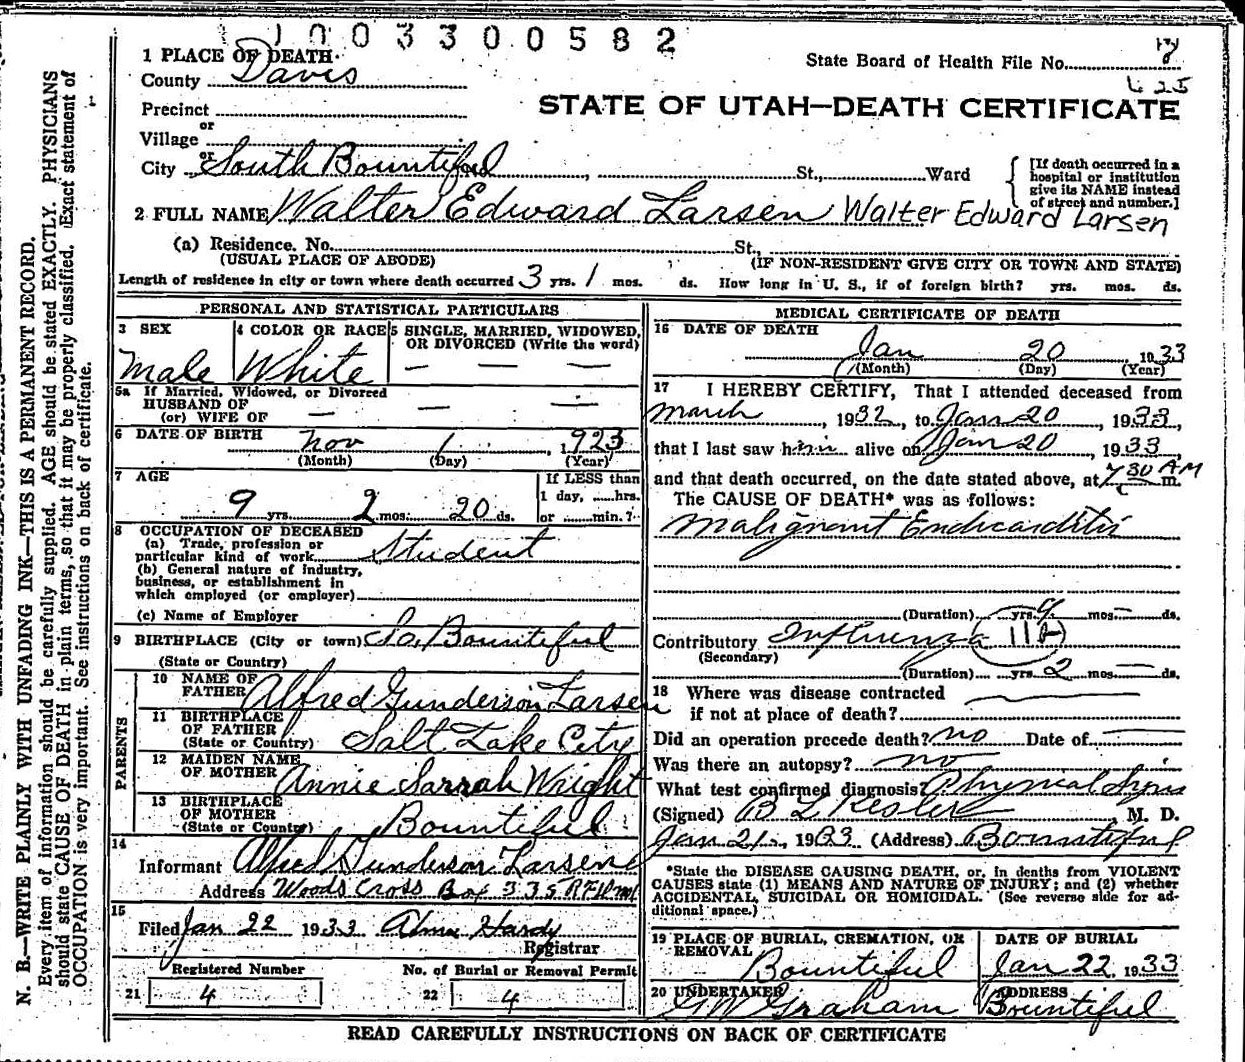 1003300582
1 PLACE OF DEATH
County Davis
State Board of Health File No. 8
625
Precinct
STATE OF UTAH—DEATH CERTIFICATE
or
Village
or
City South Bountiful, St., Ward
[If death occurred in a
hospital or institution
give its NAME instead
of street and number.]
2 FULL NAME Walter Edward Larsen Walter Edward Larsen
(a) Residence. No. St.,
(USUAL PLACE OF ABODE) (IF NON-RESIDENT GIVE CITY OR TOWN AND STATE)
Length of residence in city or town where death occurred 3 yrs. 1 mos. ds. How long in U. S., if of foreign birth? yrs. mos. ds.
PERSONAL AND STATISTICAL PARTICULARS
3 SEX
Male
4 COLOR OR RACE
White
5 SINGLE, MARRIED, WIDOWED,
OR DIVORCED (Write the word)
— — —
5a If Married, Widowed, or Divorced
HUSBAND OF
(or) WIFE OF — — —
6 DATE OF BIRTH Nov 1, 1923
(Month) (Day) (Year)
7 AGE
9 yrs. 2 mos. 20 ds.
If LESS than
1 day, ......hrs.
or .......min.?
8 OCCUPATION OF DECEASED
(a) Trade, profession or
particular kind of work Student
(b) General nature of industry,
business, or establishment in
which employed (or employer)
(c) Name of Employer
9 BIRTHPLACE (City or town) So. Bountiful
(State or Country)
PARENTS
10 NAME OF
FATHER Alfred Gunderson Larsen
11 BIRTHPLACE
OF FATHER
(State or Country) Salt Lake City
12 MAIDEN NAME
OF MOTHER Annie Sarrah Wright
13 BIRTHPLACE
OF MOTHER
(State or Country) Bountiful
14
Informant Alfred Gunderson Larsen
Address Woods Cross Box 335 RFD no 1
15
Filed Jan 22 1933 Alma Hardy
Registrar
Registered Number
21 4
No. of Burial or Removal Permit
22 4
MEDICAL CERTIFICATE OF DEATH
16 DATE OF DEATH
Jan 20 1933
(Month) (Day) (Year)
17 I HEREBY CERTIFY, That I attended deceased from
March, 1932, to Jan 20, 1933,
that I last saw him alive on Jan 20, 1933,
and that death occurred, on the date stated above, at 7 30 AM m.
The CAUSE OF DEATH* was as follows:
Malignant Endicarditis
(Duration) yrs. 9 mos. — ds.
Contributory Influenza 11A
(Secondary)
(Duration) yrs. 2 mos. — ds.
18 Where was disease contracted
if not at place of death?
Did an operation precede death? no Date of —
Was there an autopsy? no
What test confirmed diagnosis? Physical Signs
(Signed) B L Kesler M. D.
Jan 21, 1933 (Address) Bountiful
*State the DISEASE CAUSING DEATH, or, in deaths from VIOLENT
CAUSES state (1) MEANS AND NATURE OF INJURY; and (2) whether
ACCIDENTAL, SUICIDAL OR HOMICIDAL. (See reverse side for ad-
ditional space.)
19 PLACE OF BURIAL, CREMATION, OR
REMOVAL
Bountiful
DATE OF BURIAL
Jan 22 1933
20 UNDERTAKER
G W Graham
ADDRESS
Bountiful
READ CAREFULLY INSTRUCTIONS ON BACK OF CERTIFICATE
N. B.—WRITE PLAINLY WITH UNFADING INK—THIS IS A PERMANENT RECORD.
Every item of information should be carefully supplied. AGE should be stated EXACTLY. PHYSICIANS
should state CAUSE OF DEATH in plain terms, so that it may be properly classified. Exact statement of
OCCUPATION is very important. See instructions on back of certificate.